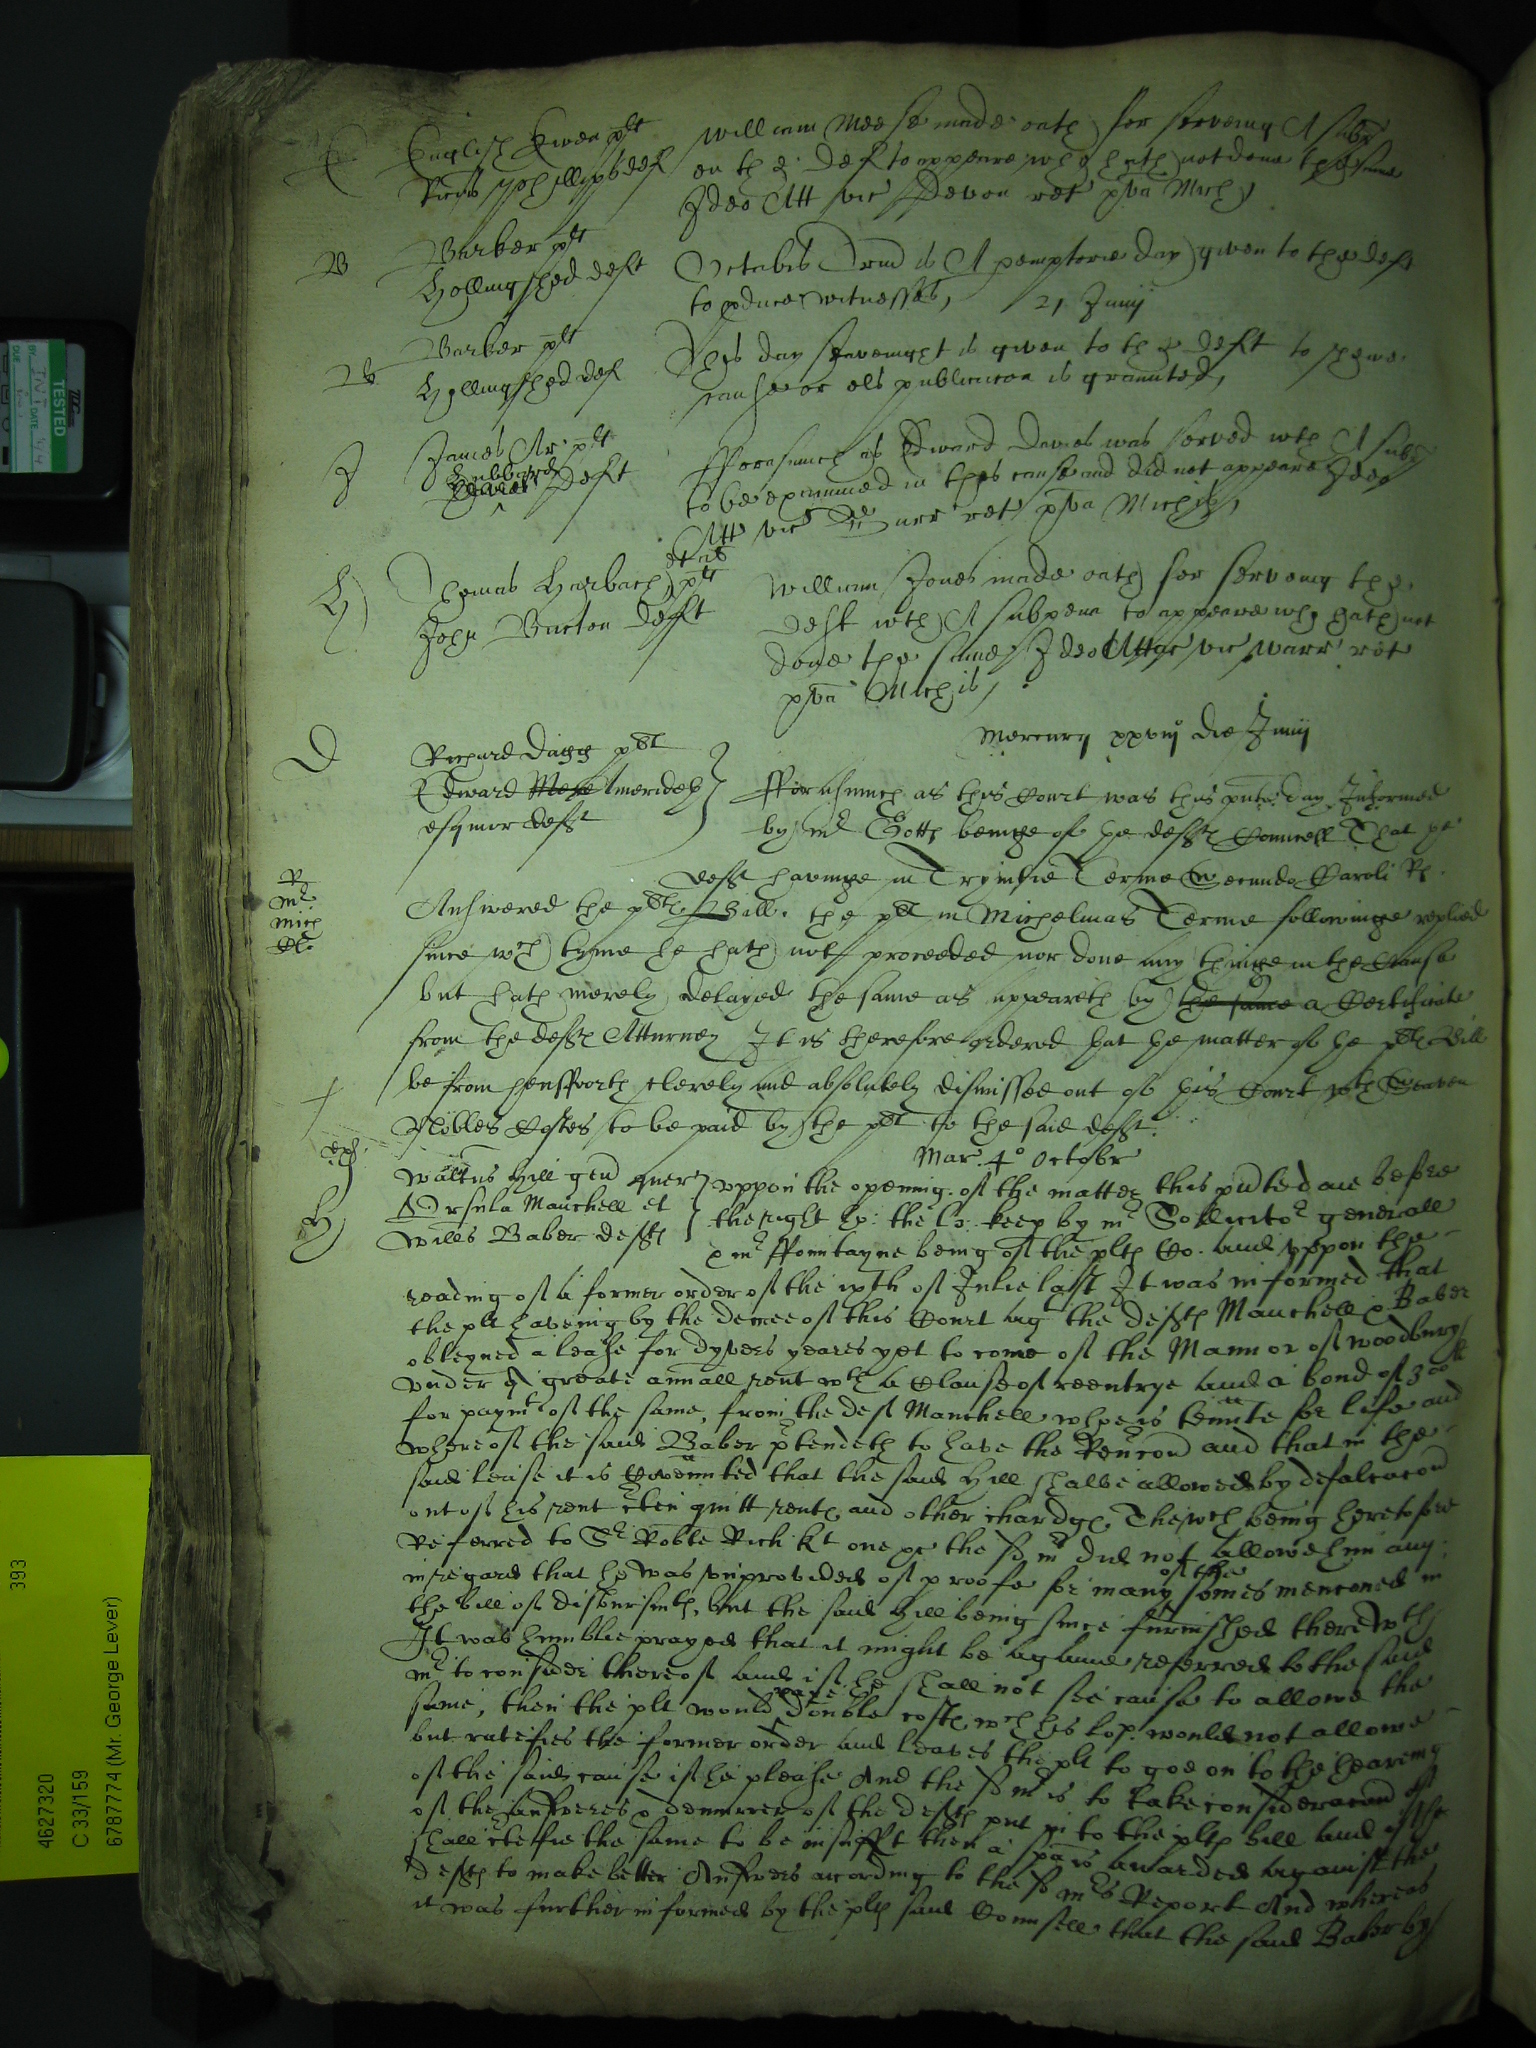 E English Ewen plt William Meese made oath for serveing A subp
Ricus Phillipps def on the def to appeare who hath not done the same
Ideo Att vic Devon ret xpva Mich
B Barber plt Octabis Trind is A pemptorie day given to the deft
Hollingshed deft to pduce witnesses, 21 Junij
B Barber plt This day seavenight is given to the deft to shewe
Hollingshed def cause or els publicacon is graunted,
J James Ar plt fforasmuch as Edward Davies was served wth A subp
Hubbard
Deft to be examined in this cause and did not appeare Ideo
Att vic ret Michis,
H Thomas Harbach et als plt William Jones made oath for serveing the
John Burton defft deft wth A subpena to appeare who hath not
done the same Ideo Attac vic warr ret
Michis,
Mercury xxviij die Junij
D Richard Dagg plt
Edward Meredeth fforasmuch as this Court was this pnte day Informed
esquior defft by Mr Gotts beinge of the defftes Councell That the
defft havinge in Trynitie Terme Secundo Caroli Rs
R
Mr
Mich
Answered the pltes Bill. the plt in Michelmas Terme followinge replied
since wch tyme he hath not proceeded nor done any thinge in the Cause
but hath merely delayed the same as appeareth by the same a Certificate
from the defftes Atturney It is therefore ordered that the matter of the pltes Bill
be from hensfforth clerely and absolutely dismissed out of this Court wth Seaven
Nobles Costes to be paid by the plt to the said defft.
Mar. 4o Octobr
exp
Walterus Hill gen quer uppon the opening of the matter this pnted aie before
H Ursula Manchell et the right ho: the lo: keep by mr Sollicitor generall
Willus Baber defftes & mr ffountayne being of the pltes Co. and uppon the
reading of a former order of the ixth of Julie last It was informed that
the plt haveing by the decree of this Court agt the defftes Manchell & Baber
obteyned a lease for dyvers yeares yet to come of the Mannor of Woodbury
under A greate annall rent wth a Clause of reentrye and a bond of 300li
for paymt of the same, from the deft Manchell whoe is tennte for life and
whereof the said Baber ptendeth to have the Revrcon and that in the
said lease it is Covennted that the said Hill shalbe allowed by defalcacon
out of his rent cten quitt rentes and other chardges. The wch being heretofore
Referred to Sr Robte Rich Kt one of the said mrs did not allowe him any
in regard that he was unprovided of proofe for many of the somes menconed in
the bill of disbursmtes, but the said Hill being since furnished therewth
It was humblie prayed that it might be againe referred to the said
mr to consider thereof and if he shall not see cause to allowe the
same, then the plt would paie double costes wch his lop. would not allowe
but ratefies the former order and leaves the plt to goe on to the heareing
of the said cause if he please And the said mr is to take consideracon of
of the answeres & demurrer of the defftes put in to the pltes bill and if he
shall ctefie the same to be insufft then a spa is awarded against the
defftes to make better Answers according to the said mrs Report And whereas
it was further informed by the pltes said Counsell that the said Baber by
TESTED
BY
DATE
DUE
393
4627320
C 33/159
6787774 (Mr. George Lever)